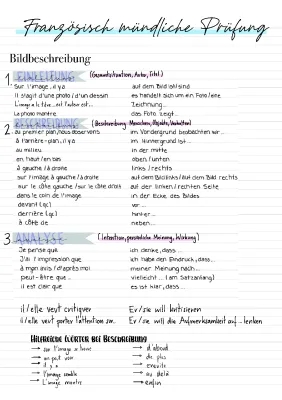 Französisch mündliche Prüfung
Bildbeschreibung
1. EINLEITUNG (Gesamtsituation, Autor, Titel)
Sur l'image, il y a auf dem Bild sind
Il s'agit d'une photo / d'un dessin es handelt sich um ein Foto / eine
L'image a le titre... est l'auteur est... Zeichnung...
La photo montre das Foto zeigt...
2. BESCHREIBUNG (Beschreibung: Menschen, Objekte, Verhalten)
au premier plan, nous observons im Vordergrund beobachten wir...
à l'arrière-plan, il y a im Hintergrund ist...
au milieu in der Mitte
en haut / en bas oben / unten
à gauche / à droite links / rechts
sur l'image à gauche / à droite auf dem Bild links / auf dem Bild rechts
sur le côté gauche / sur le côté droit auf der linken / rechten Seite
dans le coin de l'image in der Ecke des Bildes
devant (qc) vor...
derrière (qc) hinter...
à côté de neben...
3. ANALYSE (Intention, persönliche Meinung, Wirkung)
Je pense que ich denke, dass...
J'ai l'impression que ich habe den Eindruck, dass...
à mon avis / d'après moi meiner Meinung nach...
peut-être que... vielleicht... (am Satzanfang)
il est clair que es ist klar, dass...
il / elle veut critiquer Er / sie will kritisieren
il / elle veut porter l'attention sur... Er / sie will die Aufmerksamkeit auf... lenken
HILFREICHE WÖRTER BEI BESCHREIBUNG
→ sur l'image → d'abord
→ on peut voir → de plus
→ il y a → ensuite
→ l'image semble → au delà
→ L'image montre → enfin